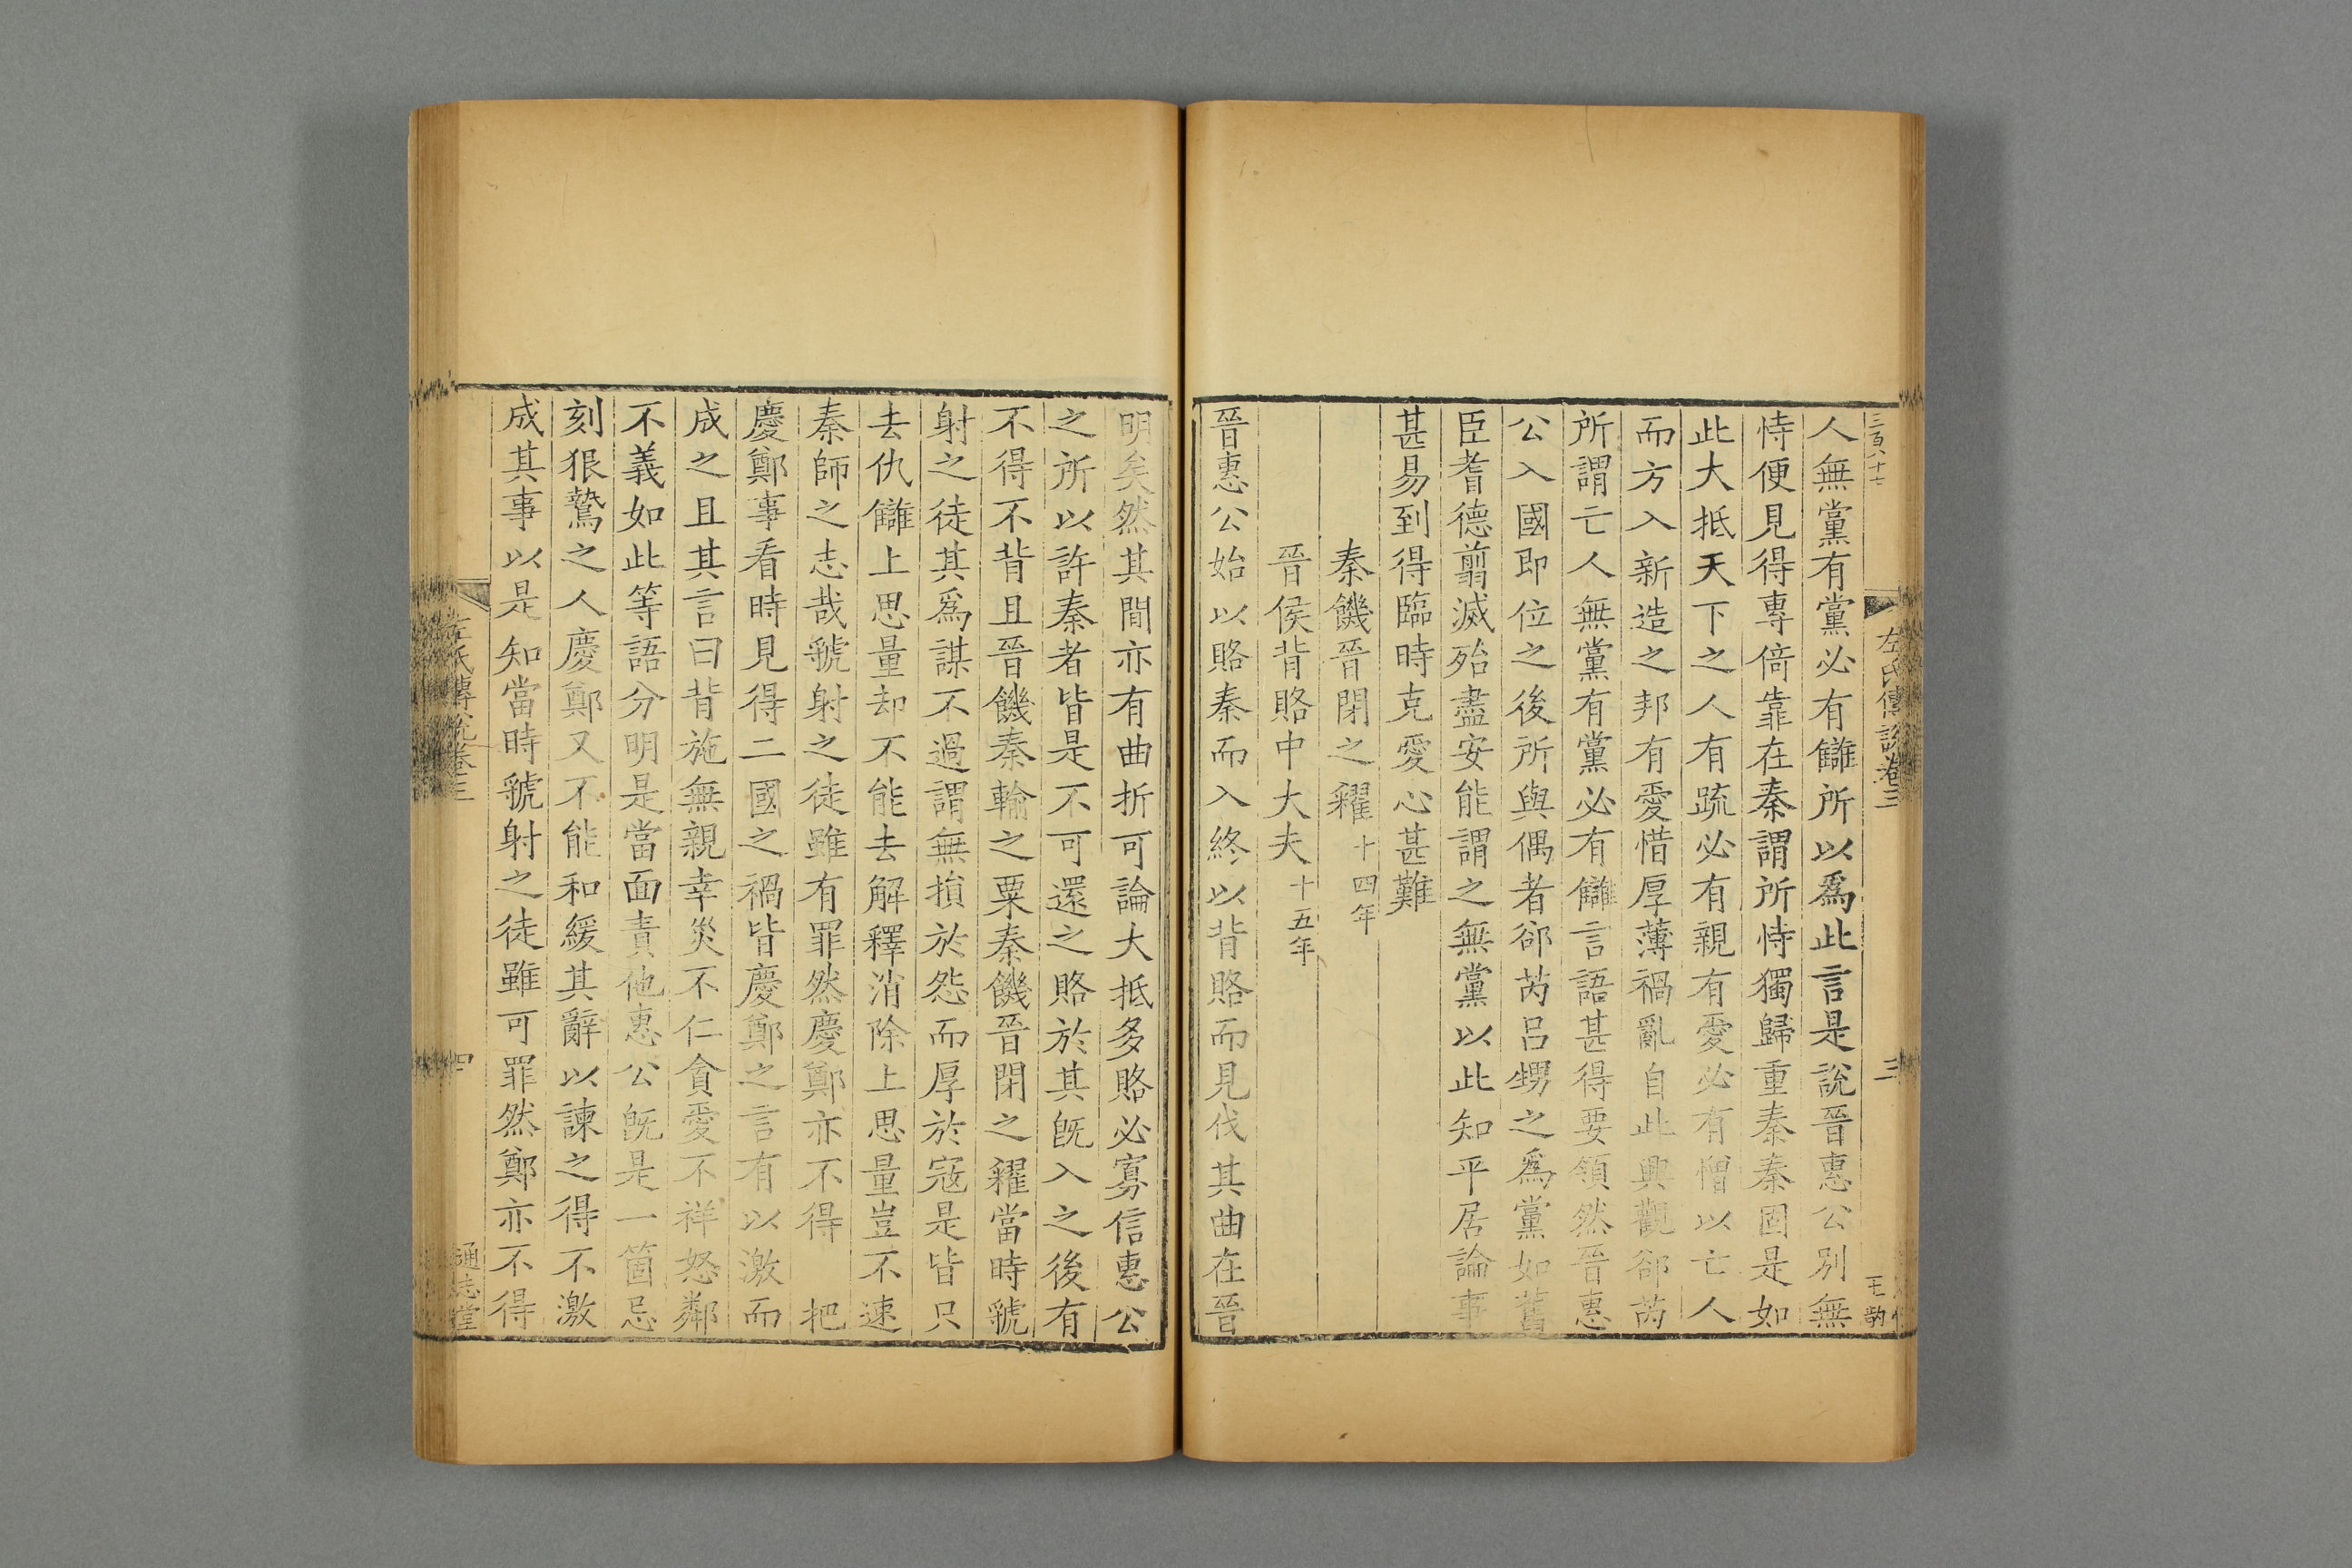 三百八十七
左氏傳說卷三
三
王
人無黨有黨必有讎所以爲此言是說晉惠公別無
恃便見得專倚靠在秦謂所恃獨歸重秦秦固是如
此大抵天下之人有疏必有親有愛必有憎以亡人
而方入新造之邦有愛惜厚薄禍亂自此興觀郤芮
所謂亡人無黨有黨必有讎言語甚得要領然晉惠
公入國即位之後所與偶者郤芮呂甥之爲黨如舊
臣耆德翦滅殆盡安能謂之無黨以此知平居論事
甚易到得臨時克愛心甚難
秦饑晉閉之糴十四年
晉侯背賂中大夫十五年
晉惠公始以賂秦而入終以背賂而見伐其曲在晉
明矣然其間亦有曲折可論大抵多賂必寡信惠公
之所以許秦者皆是不可還之賂於其旣入之後有
不得不背且晉饑秦輸之粟秦饑晉閉之糴當時虢
射之徒其爲謀不過謂無損於怨而厚於寇是皆只
去仇讎上思量却不能去解釋消除上思量豈不速
秦師之志哉虢射之徒雖有罪然慶鄭亦不得 把
慶鄭事看時見得二國之禍皆慶鄭之言有以激而
成之且其言曰背施無親幸災不仁貪愛不祥怒鄰
不義如此等語分明是當面責他惠公旣是一箇忌
刻狠鷙之人慶鄭又不能和緩其辭以諫之得不激
成其事以是知當時虢射之徒雖可罪然鄭亦不得
左氏傳說卷三
四
通志堂